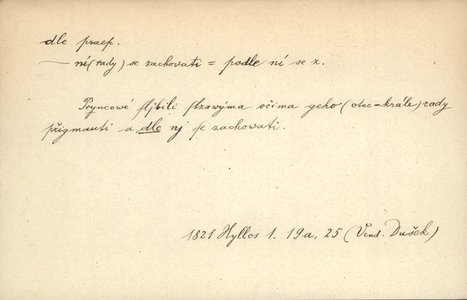 dle praep.
— ní (rady) se zachovati = podle ní se z.
Pryncowé sljbili slzawýma očima geho (otce-krále) rady
přigmauti a dle nj se zachowati.
1821 Hyllos 1. 19a, 25 (Vend. Dušek)